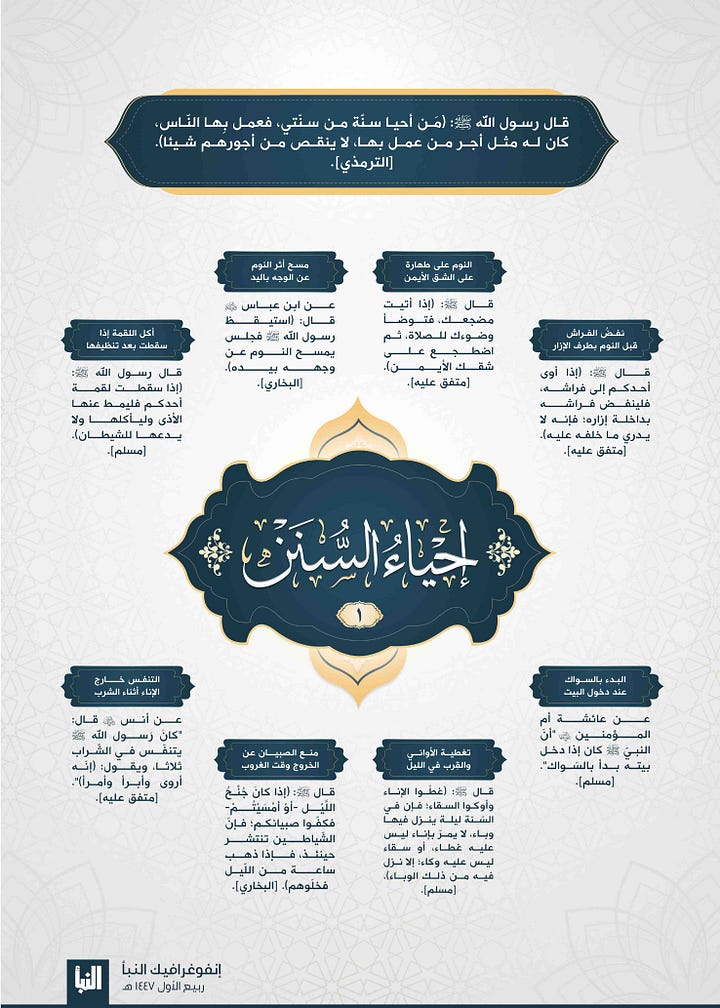 قال رسول الله ﷺ: (مَن أحيا سنّة من سنّتي، فعمل بِها النّاس،
كان له مثل أجر من عمل بها، لا ينقص من أجورهم شيئا).
[الترمذي].
نفضُ الفراش
قبل النوم بطرف الإزار
قال ﷺ: (إذا أوى
أحدكم إلى فراشه،
فلينفض فراشه
بداخلة إزاره؛ فإنه لا
يدري ما خلفه عليه).
[متفق عليه].
النوم على طهارة
على الشق الأيمن
قال ﷺ: (إذا أتيت
مضجعك، فتوضأ
وضوءك للصلاة، ثم
اضطجع على
شقك الأيمن).
[متفق عليه].
مسح أثر النوم
عن الوجه باليد
عن ابن عباس ﵁
قال: (استيقظ
رسول الله ﷺ فجلس
يمسح النوم عن
وجهه بيده).
[البخاري].
أكل اللقمة إذا
سقطت بعد تنظيفها
قال رسول الله ﷺ:
(إذا سقطت لقمة
أحدكم فليمط عنها
الأذى وليأكلها ولا
يدعها للشيطان).
[مسلم].
إحياءُ السُّنَن
١
البدء بالسواك
عند دخول البيت
عن عائشة أم
المؤمنين ﵂ "أنّ
النبيّ ﷺ كان إذا دخل
بيته بدأ بالسّواك".
[مسلم].
تغطية الأواني
والقِرب في الليل
قال ﷺ: (غطُوا الإناء
وأوكوا السقاء؛ فإن في
السّنة ليلة ينزل فيها
وباء، لا يمرّ بإناء ليس
عليه غطاء، أو سقاء
ليس عليه وكاء؛ إلا نزل
فيه من ذلك الوباء).
[مسلم].
منع الصبيان عن
الخروج وقت الغروب
قال ﷺ: (إذا كانَ جُنْحُ
اللَّيْل -أوْ أمْسَيْتُمْ-
فكفّوا صبيانكم؛ فإنّ
الشّياطين تنتشر
حينئذ، فإذا ذهب
ساعة من اللّيل
فخلّوهم). [البخاري].
التنفس خارج
الإناء أثناء الشرب
عن أنس ﵁ قال:
"كانَ رَسول الله ﷺ
يتنفّس في الشّراب
ثلاثا، ويقول: (إنّه
أروى وأبرأ وأمرأ)".
[متفق عليه].
إنفوغرافيك النبأ
ربيع الأول ١٤٤٧ هـ
النبأ